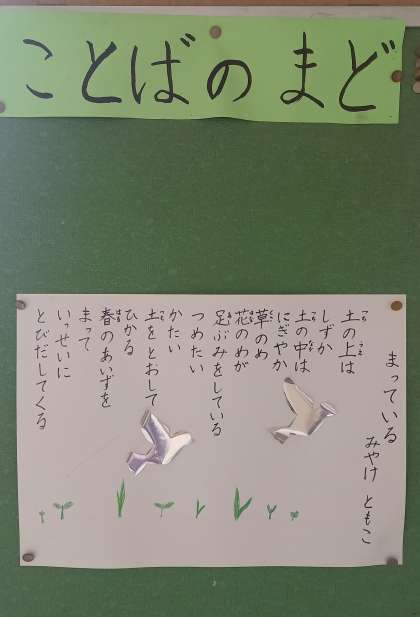 ことばの まど
まっている
みやけ ともこ
土の上は
しずか
土の中は
にぎやか
草のめ
花のめが
足ぶみをしている
つめたい
かたい
土をとおして
ひかる
春のあいずを
まって
いっせいに
とびだしてくる